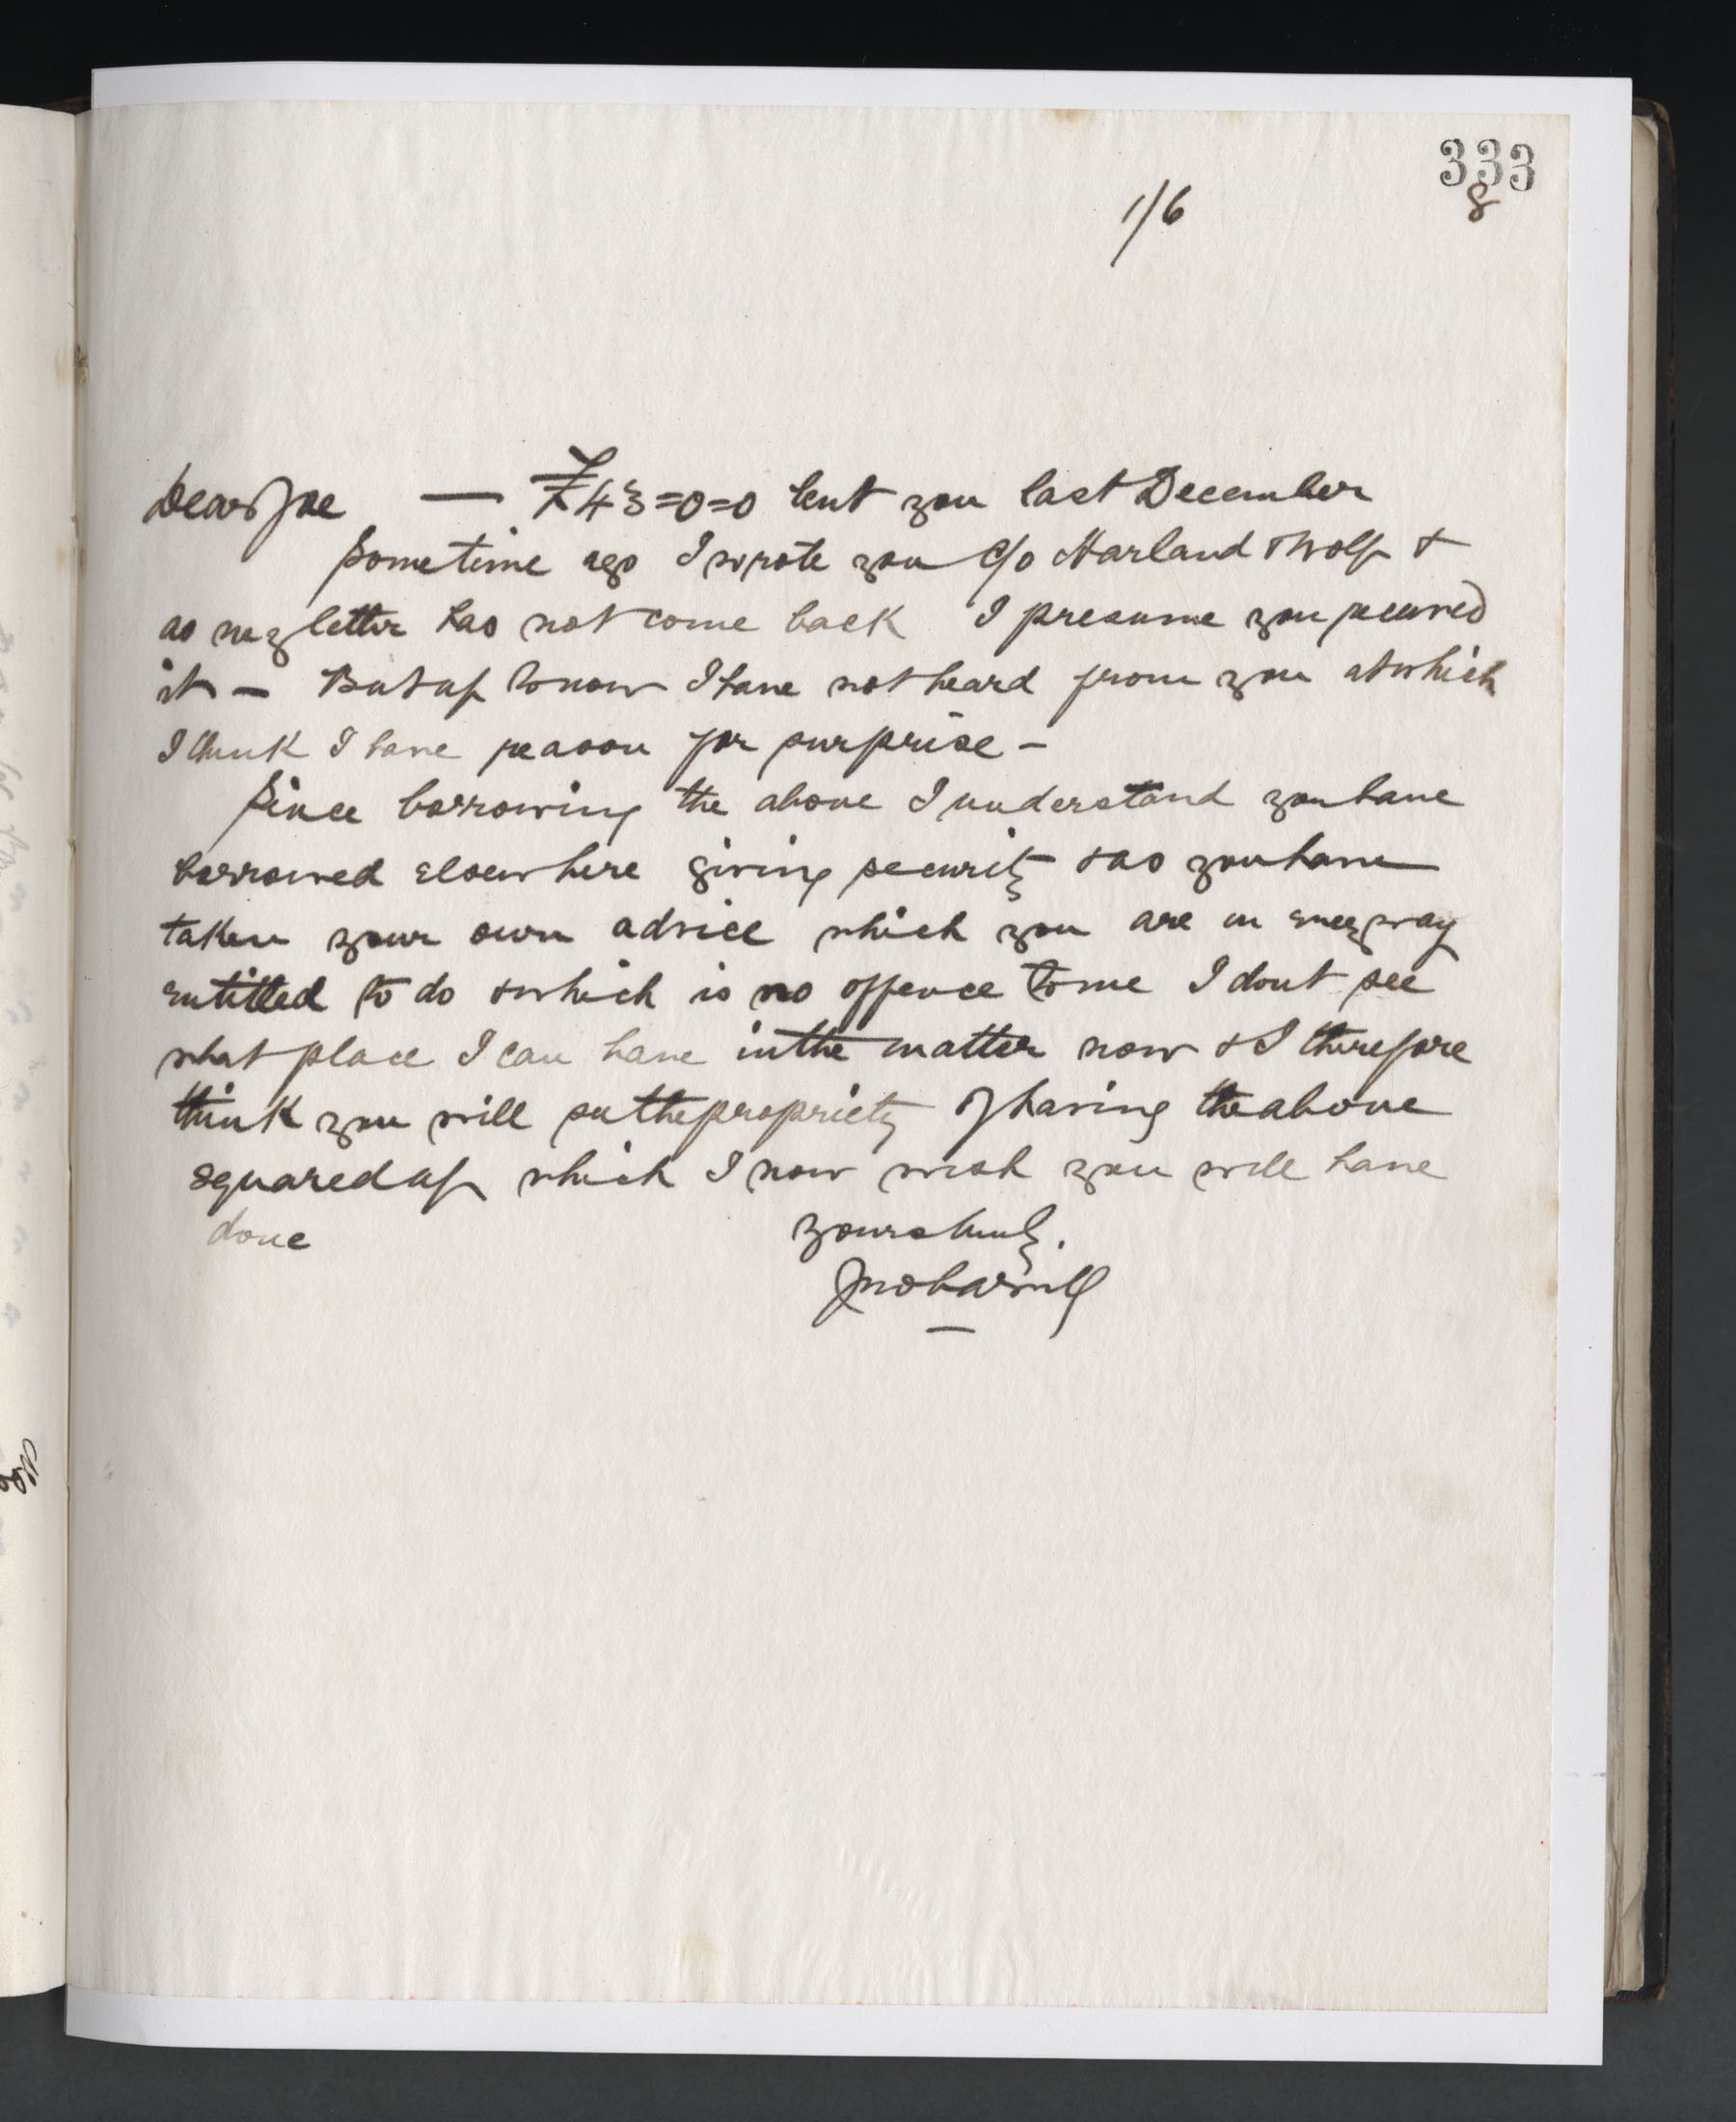 333
8
1/6
Dear Joe — £43=0=0 lent you last December
Sometime ago I wrote you c/o Harland & Wolf &
as my letter has not come back I presume you received
it — But up to now I have not heard from you at which
I think I have reason for surprise —
Since borrowing the above I understand you have
borrowed elsewhere giving security & as you have
taken your own advice which you are in every way
entitled to do & which is no offence to me I dont see
what place I can have in the matter now & I therefore
think you will see the propriety of having the above
squared up which I now wish you will have
done yours truly.